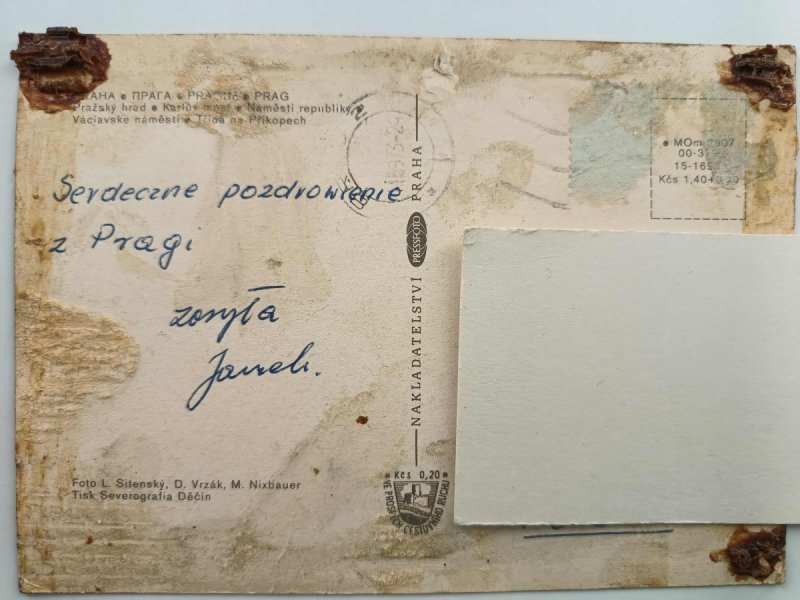 PRAHA • ПРАГА • PRAGUE • PRAG
Pražský hrad • Karlův most • Náměstí republiky
Václavské náměstí • Třída na Příkopech
Serdeczne pozdrowienie
z Pragi
zosyła
Janek.
Foto L. Sitenský, D. Vrzák, M. Nixbauer
Tisk Severografia Děčín
NAKLADATELSTVÍ PRESSFOTO PRAHA
Kčs 0,20
VE PROSPĚCH CESTOVNÍHO RUCHU
• MOm
00-37
15-169
Kčs 1,40+0,20